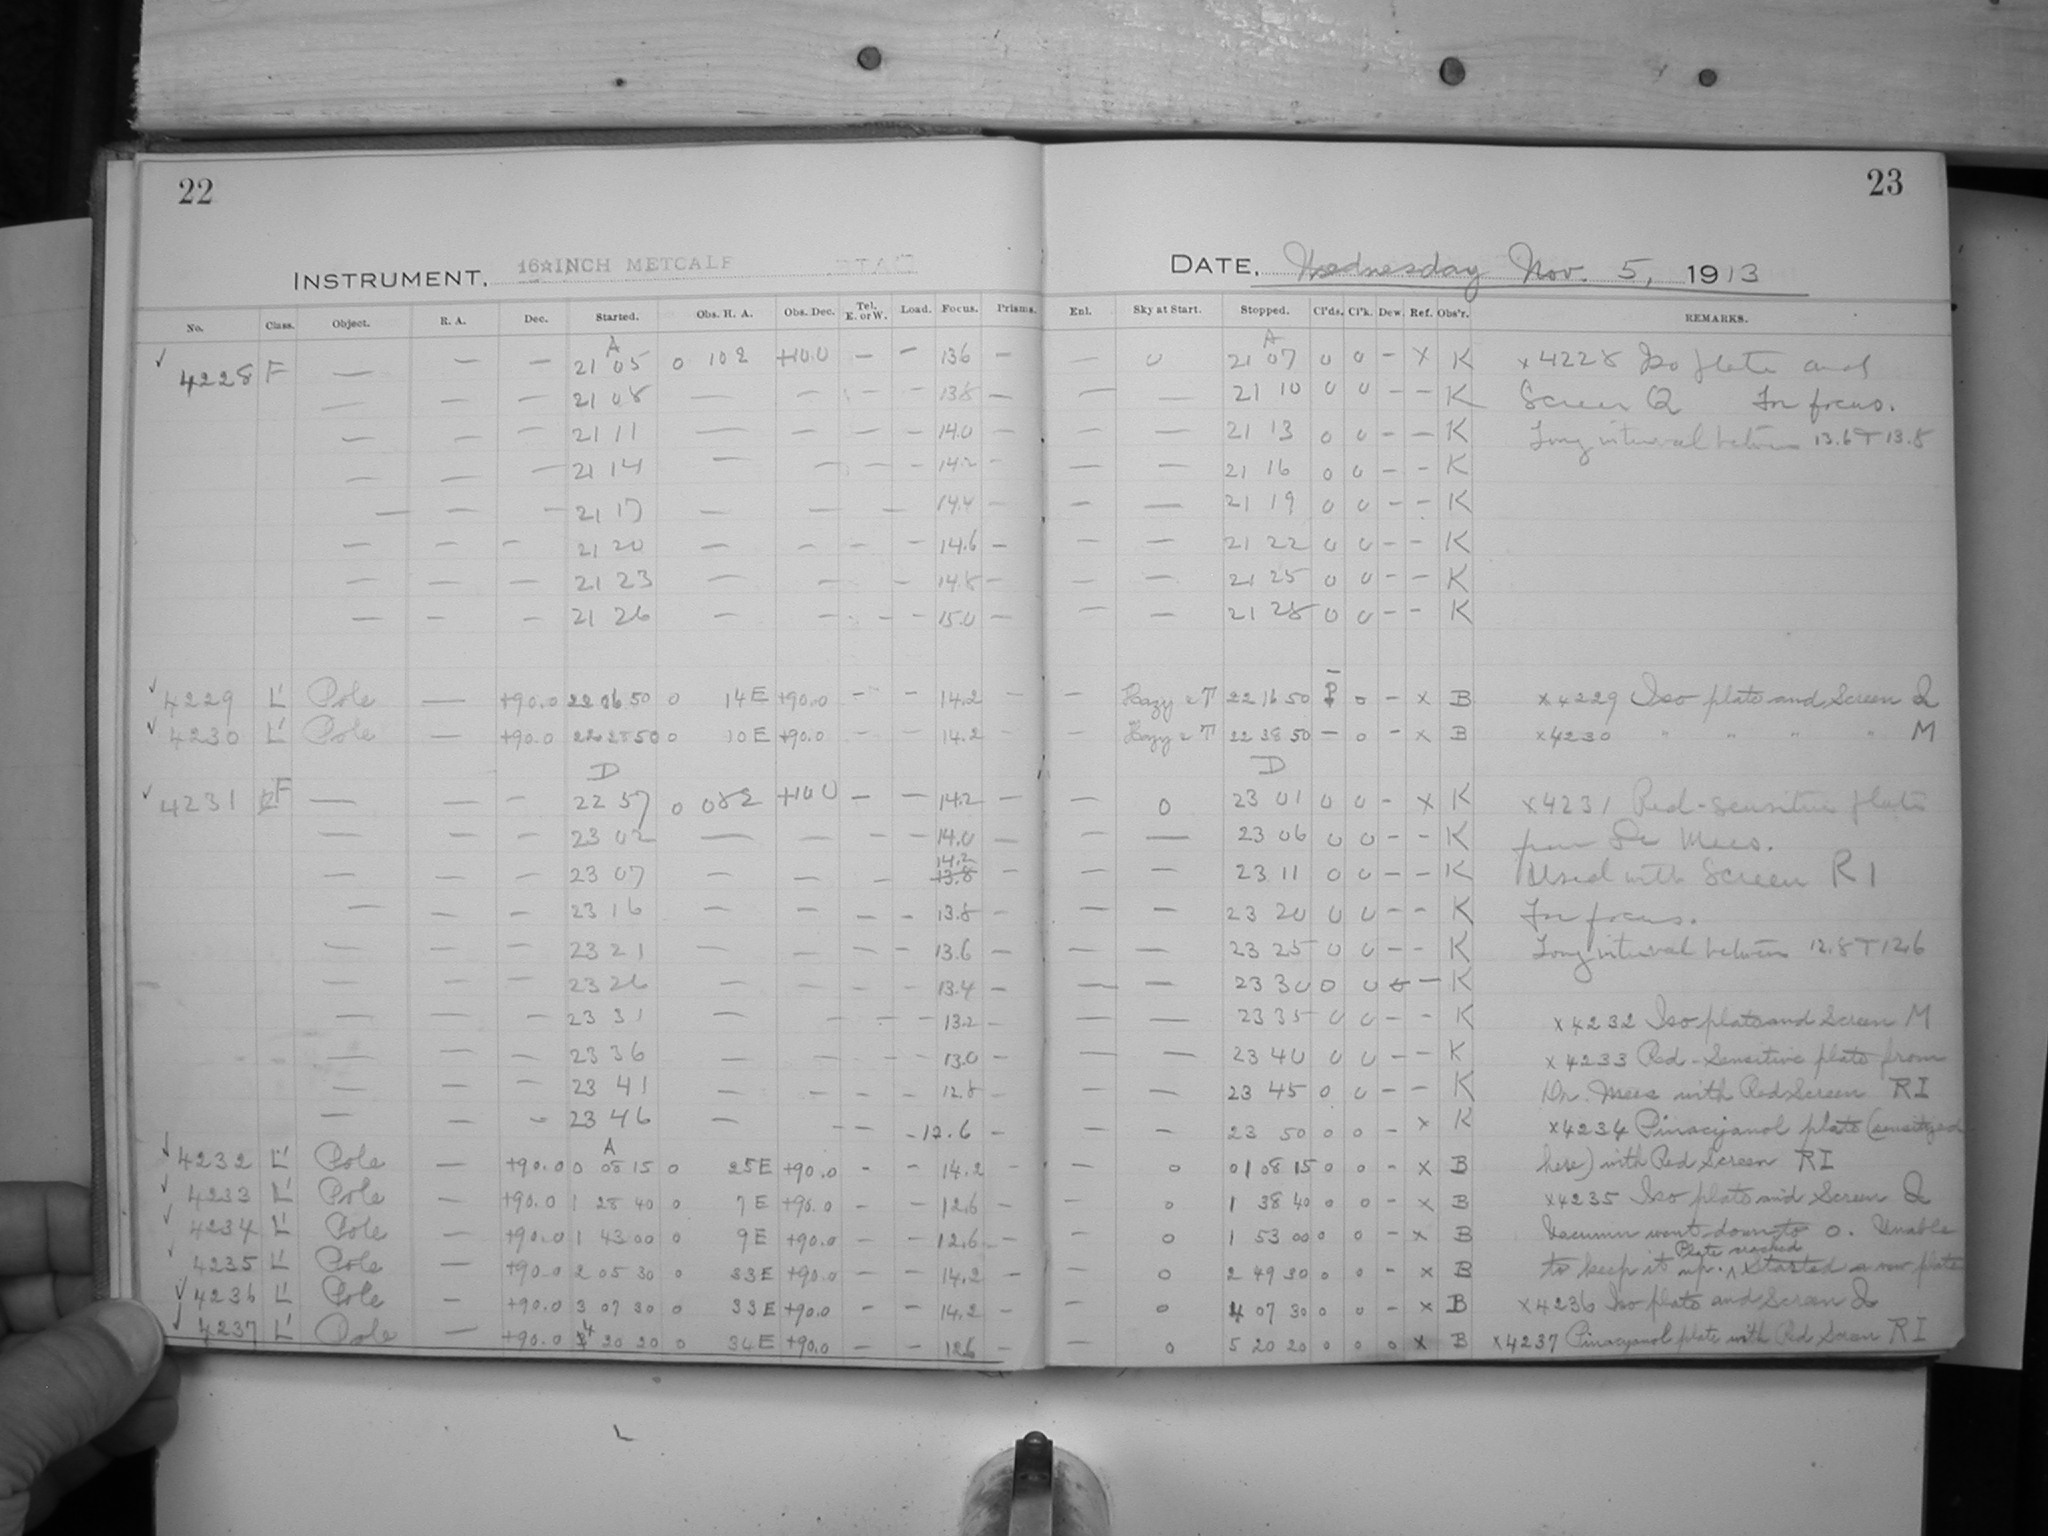 22
23
INSTRUMENT. 16 INCH METCALF
DATE. Wednesday Nov. 5, 1913
No. Class. Object. R. A. Dec. Started. Obs. H. A. Obs. Dec. Tel. E. or W. Load. Focus. Prisms. Enl. Sky at Start. Stopped. Cl'ds. Cl'k. Dew. Ref. Obs'r. REMARKS.
A A
✓ 4228 F — — — 21 05 0 102 +10.0 — — 13.6 — — 0 21 07 0 0 - X K x4228 Iso plate and
— — — 21 08 — — — — 13.8 — — — 21 10 0 0 - - K Screen Q For focus.
— — — 21 11 — — — — 14.0 — — — 21 13 0 0 - - K Long interval between 13.6 + 13.8
— — — 21 14 — — — — 14.2 — — — 21 16 0 0 - - K
— — — 21 17 — — — 14.4 — — — 21 19 0 0 - - K
— — — 21 20 — — — — 14.6 — — — 21 22 0 0 - - K
— — — 21 23 — — — 14.8 — — — 21 25 0 0 - - K
— — — 21 26 — — — — 15.0 — — — 21 28 0 0 - - K
✓ 4229 L' Pole — +90.0 22 06 50 0 14 E +90.0 - - 14.2 - - Hazy 22 16 50 0 - x B x4229 Iso plate and Screen Q
✓ 4230 L' Pole — +90.0 22 28 50 0 10 E +90.0 - - 14.2 - - Hazy 22 38 50 - 0 - x B x4230 " " " " M
D D
✓ 4231 F — — — 22 57 0 082 +10.0 — — 14.2 — — 0 23 01 0 0 - X K x4231 Red-sensitive plate
— — — 23 02 — — — — 14.0 — — — 23 06 0 0 - - K from Dr Mees.
14.2
— — — 23 07 — — — 13.8 — — — 23 11 0 0 - - K Used with Screen R I
— — — 23 16 — — — — 13.8 — — — 23 20 0 0 - - K For focus.
— — — 23 21 — — — — 13.6 — — — 23 25 0 0 - - K Long interval between 12.8 + 12.6
— — — 23 26 — — — — 13.4 — — — 23 30 0 0 - K
— — — 23 31 — — — — 13.2 — — — 23 35 0 0 - - K x4232 Iso plate and Screen M
— — — 23 36 — — — — 13.0 — — — 23 40 0 0 - - K x4233 Red-Sensitive plate from
— — — 23 41 — — — — 12.8 — — — 23 45 0 0 - - K Dr. Mees with Red Screen RI
— — — 23 46 — — — - 12.6 — — — 23 50 0 0 - x K x4234 Pinacyanol plate (sensitized
A
✓ 4232 L' Pole — +90.0 0 08 15 0 25 E +90.0 - - 14.2 - - 0 01 08 15 0 0 - X B here) with Red Screen RI
✓ 4233 L' Pole — +90.0 1 28 40 0 7 E +90.0 - - 12.6 - - 0 1 38 40 0 0 - x B x4235 Iso plate and Screen Q
✓ 4234 L' Pole — +90.0 1 43 00 0 9 E +90.0 - - 12.6 - - 0 1 53 00 0 0 - X B Vacuum went down to 0. Unable
Plate cracked
✓ 4235 L' Pole — +90.0 2 05 30 0 33 E +90.0 - - 14.2 - - 0 2 49 30 0 0 - x B to keep it up. ^ Started a new plate
✓ 4236 L' Pole — +90.0 3 07 30 0 33 E +90.0 - - 14.2 - - 0 4 07 30 0 0 - x B x4236 Iso plate and Screen Q
✓ 4237 L' Pole — +90.0 4 20 20 0 34 E +90.0 - - 12.6 - - 0 5 20 20 0 0 0 x B x4237 Pinacyanol plate with Red Screen RI